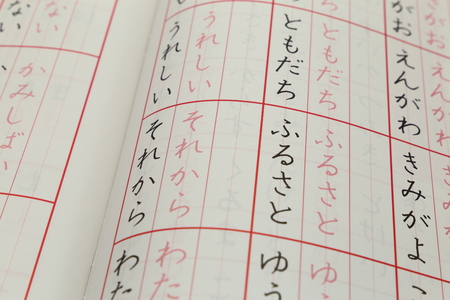 がお
えんがわ
きみがよ
がお
えんがわ
きみがよ
ともだち
ふるさと
ゆう
ともだち
ふるさと
ゆう
うれしい
それから
わた
うれしい
それから
わた
ない
かみしばい
ない